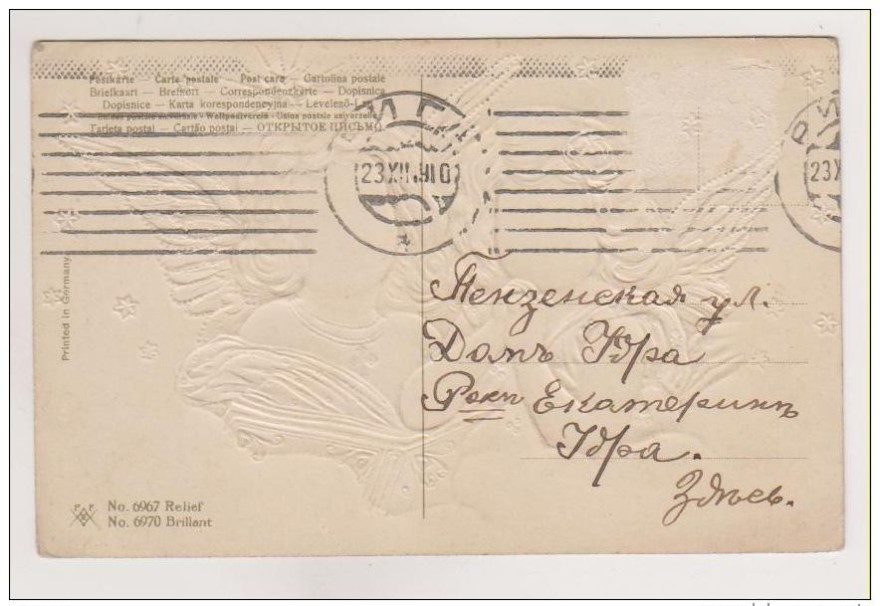 Postkarte — Carte postale — Post card — Cartolina postale
Briefkaart — Brefkort — Correspondenzkarte — Dopisnice
Dopisnice — Karta korespondencyjna — Levelező-L
Weltpostverein - Union postale universelle
Tarjeta postal — Cartão postal — ОТКРЫТОЕ ПИСЬМО
РИГА
23 XII. 910
РИ
23X
Printed in Germany
Пензенская ул.
Домъ Удра
Екатеринѣ
Удра.
Здѣсь.
No. 6967 Relief
No. 6970 Brillant